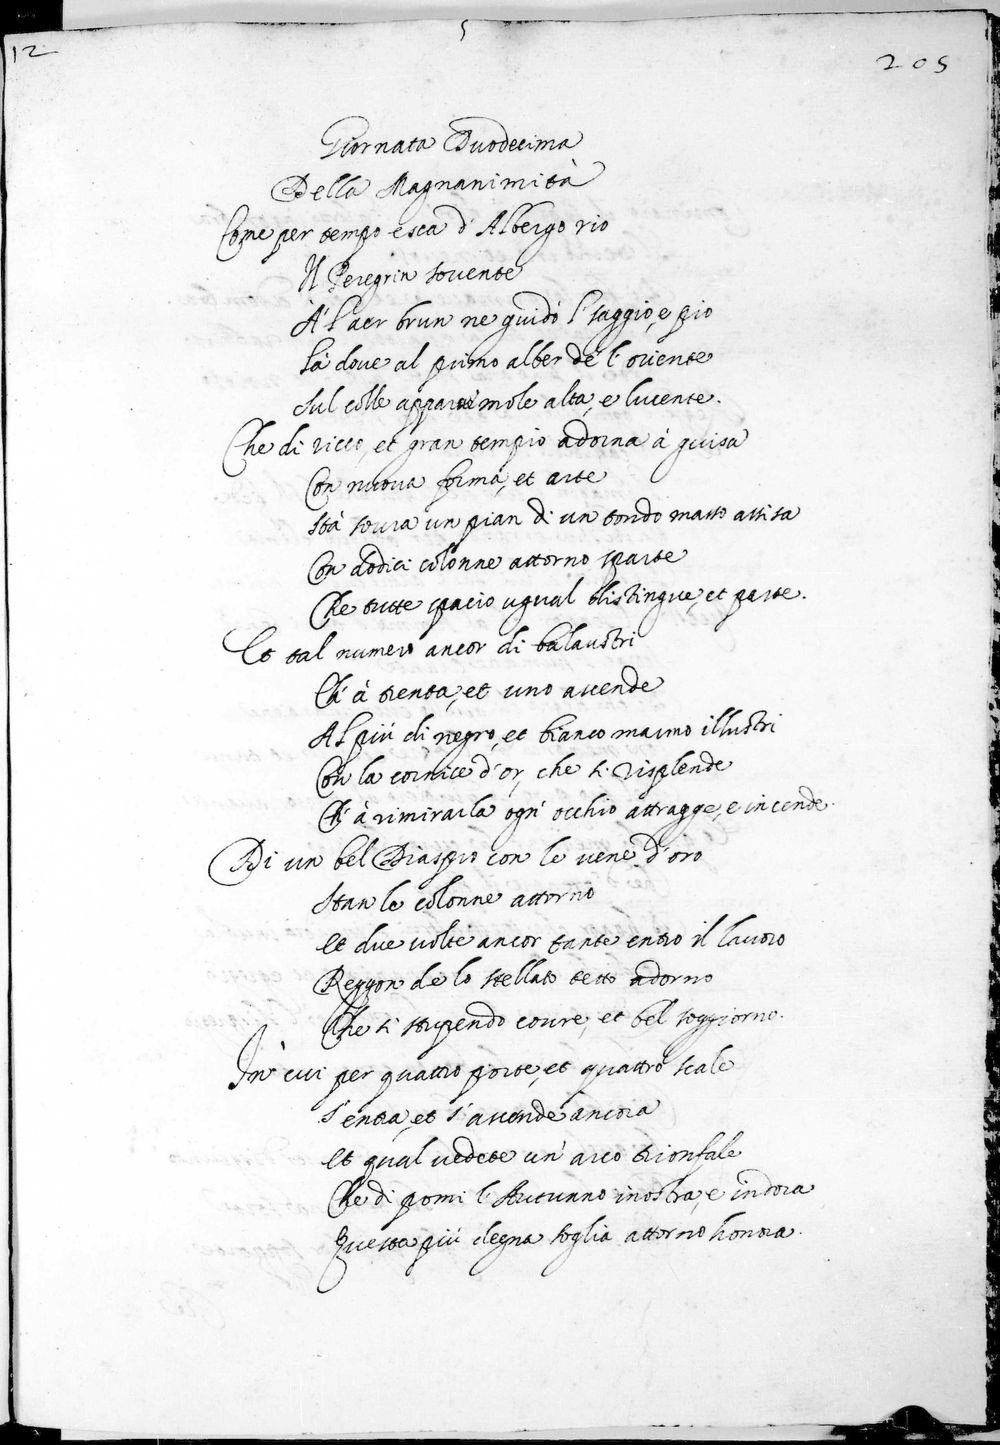 5
12
205
Giornata Duodecima
Della Magnanimità
Come per tempo esca d'Albergo rio
Il Peregrin sovente
A' l'aer brun ne guidò l'saggio, e pio
Là dove al primo alber de l'oriente
Sul colle apparse mole alta, e lucente.
Che di ricco, et gran tempio adorna à guisa
Con nuova forma, et arte
Stà sovra un pian di un tondo masso assisa
Con dodici colonne attorno sparte
Che tutte spacio ugual distingue, et parte.
Et tal numero ancor di balaustri
Ch' à trenta, et uno ascende
Al più di negro, et bianco marmo illustri
Con la cornice d'or, che si risplende
Ch' à rimirarla ogn' occhio attragge, e incende.
Di un bel Diaspro con le vene d'oro
Stan le colonne attorno
Et due volte ancor tante entro il lavoro
Reggon de lo stellato tetto adorno
Che si stupendo covre, et bel soggiorno.
In cui per quattro porte, et quattro scale
S'entra, et s'ascende ancora
Et qual vedete un' arco trionfale
Che di pomi l'Autunno inostra, e indora
Questa più degna soglia attorno honora.